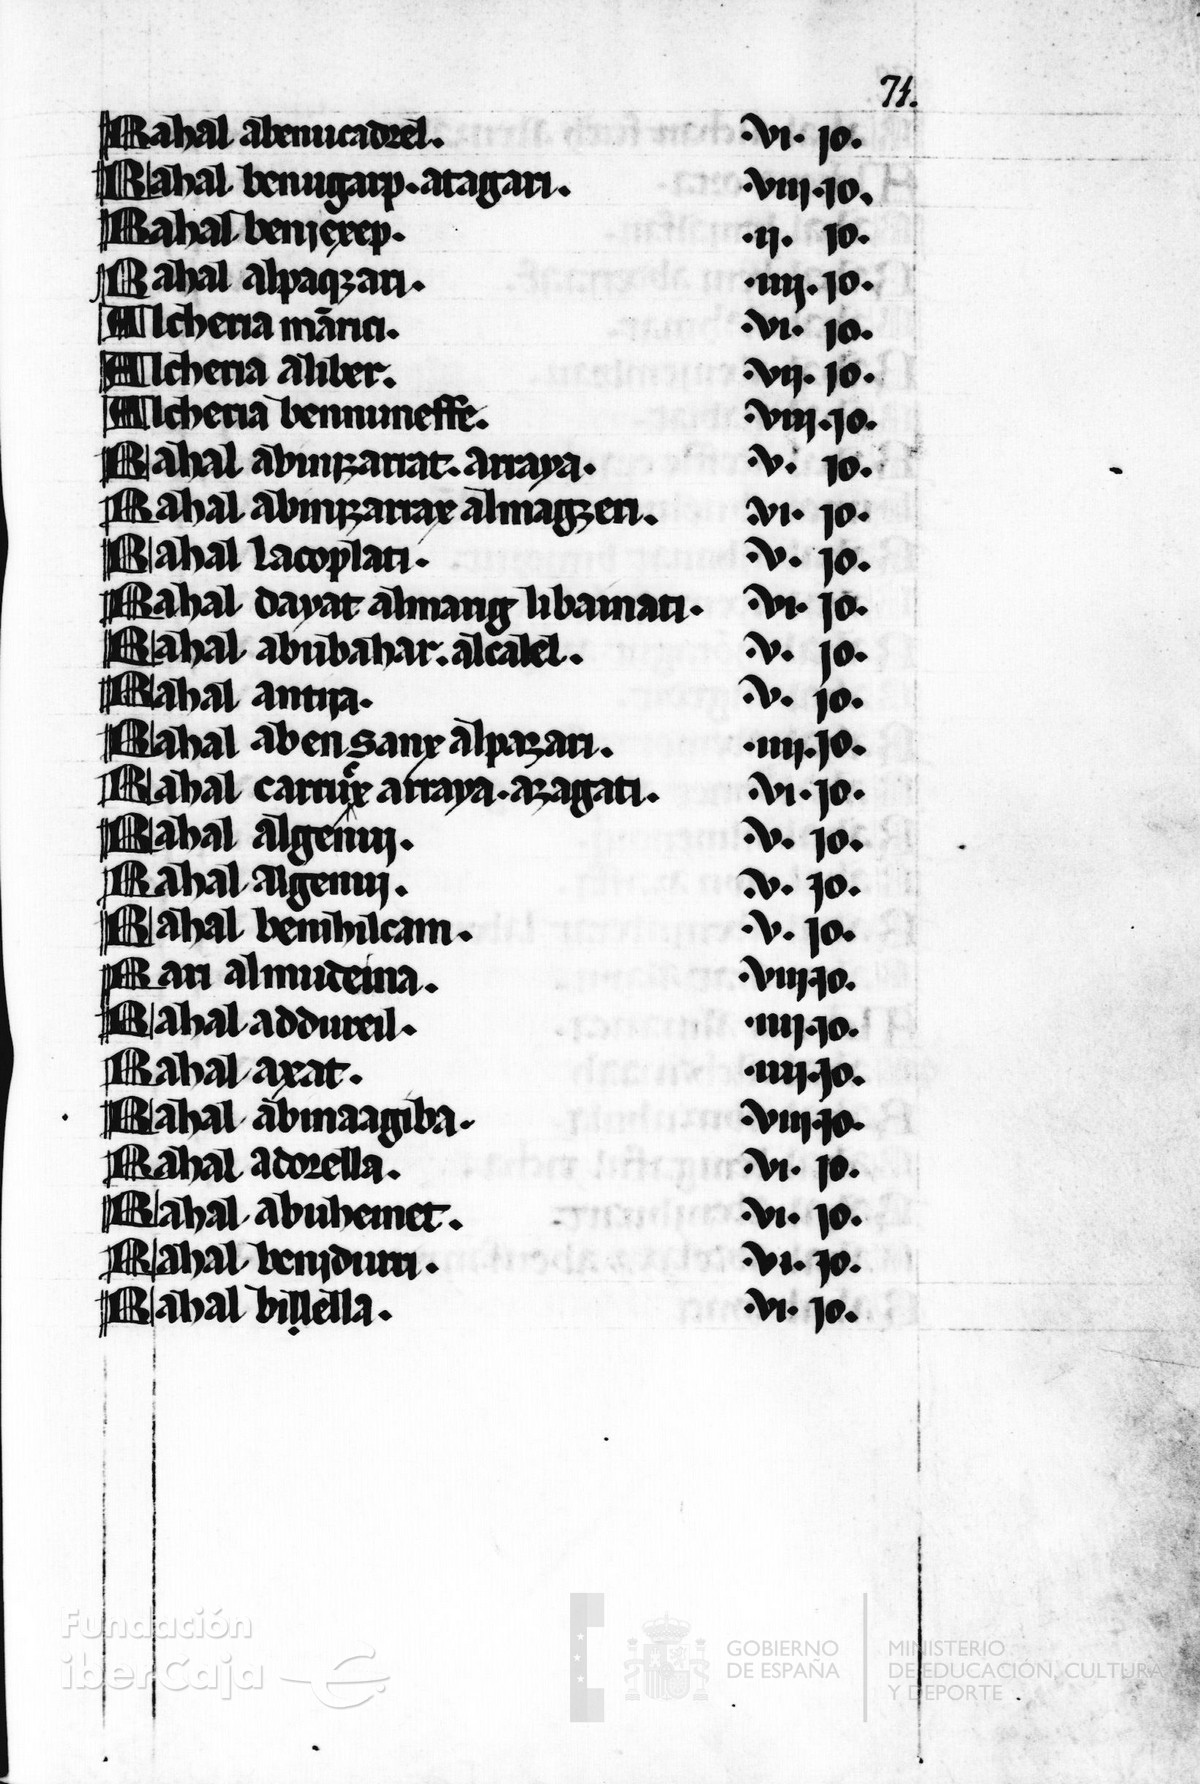 71.
Rahal abenucadrel. .vi. jo.
Rahal benugarp. atagari. .viii. jo.
Rahal benjexep. .ij. jo.
Rahal alpaqzari. .iiij. jo.
Alcheria mārici. .vi. jo.
Alcheria aliber. .vij. jo.
Alcheria bennuneffe. .viii. jo.
Rahal abinizariat. arraya. .v. jo.
Rahal abinizariax almagzeri. .vi. jo.
Rahal lacoplati. .v. jo.
Rahal dayat almarig libamati. .vi. jo.
Rahal abubahar. alcalel. .v. jo.
Rahal antija. .v. jo.
Rahal aben sanx alpazari. .iiij. jo.
Rahal carrux arraya. azagati. .vi. jo.
Rahal algenuj. .v. jo.
Rahal algenuj. .v. jo.
Rahal benihilcam. .v. jo.
Rari almudeina. .viii. jo.
Rahal addureil. .iiij. jo.
Rahal axat. .iiij. jo.
Rahal abinaagiba. .viii. jo.
Rahal adorella. .vi. jo.
Rahal abuhemet. .vi. jo.
Rahal benjdurri. .vi. jo.
Rahal billella. .vi. jo.
Fundación
iberCaja
GOBIERNO
DE ESPAÑA
MINISTERIO
DE EDUCACIÓN, CULTURA
Y DEPORTE